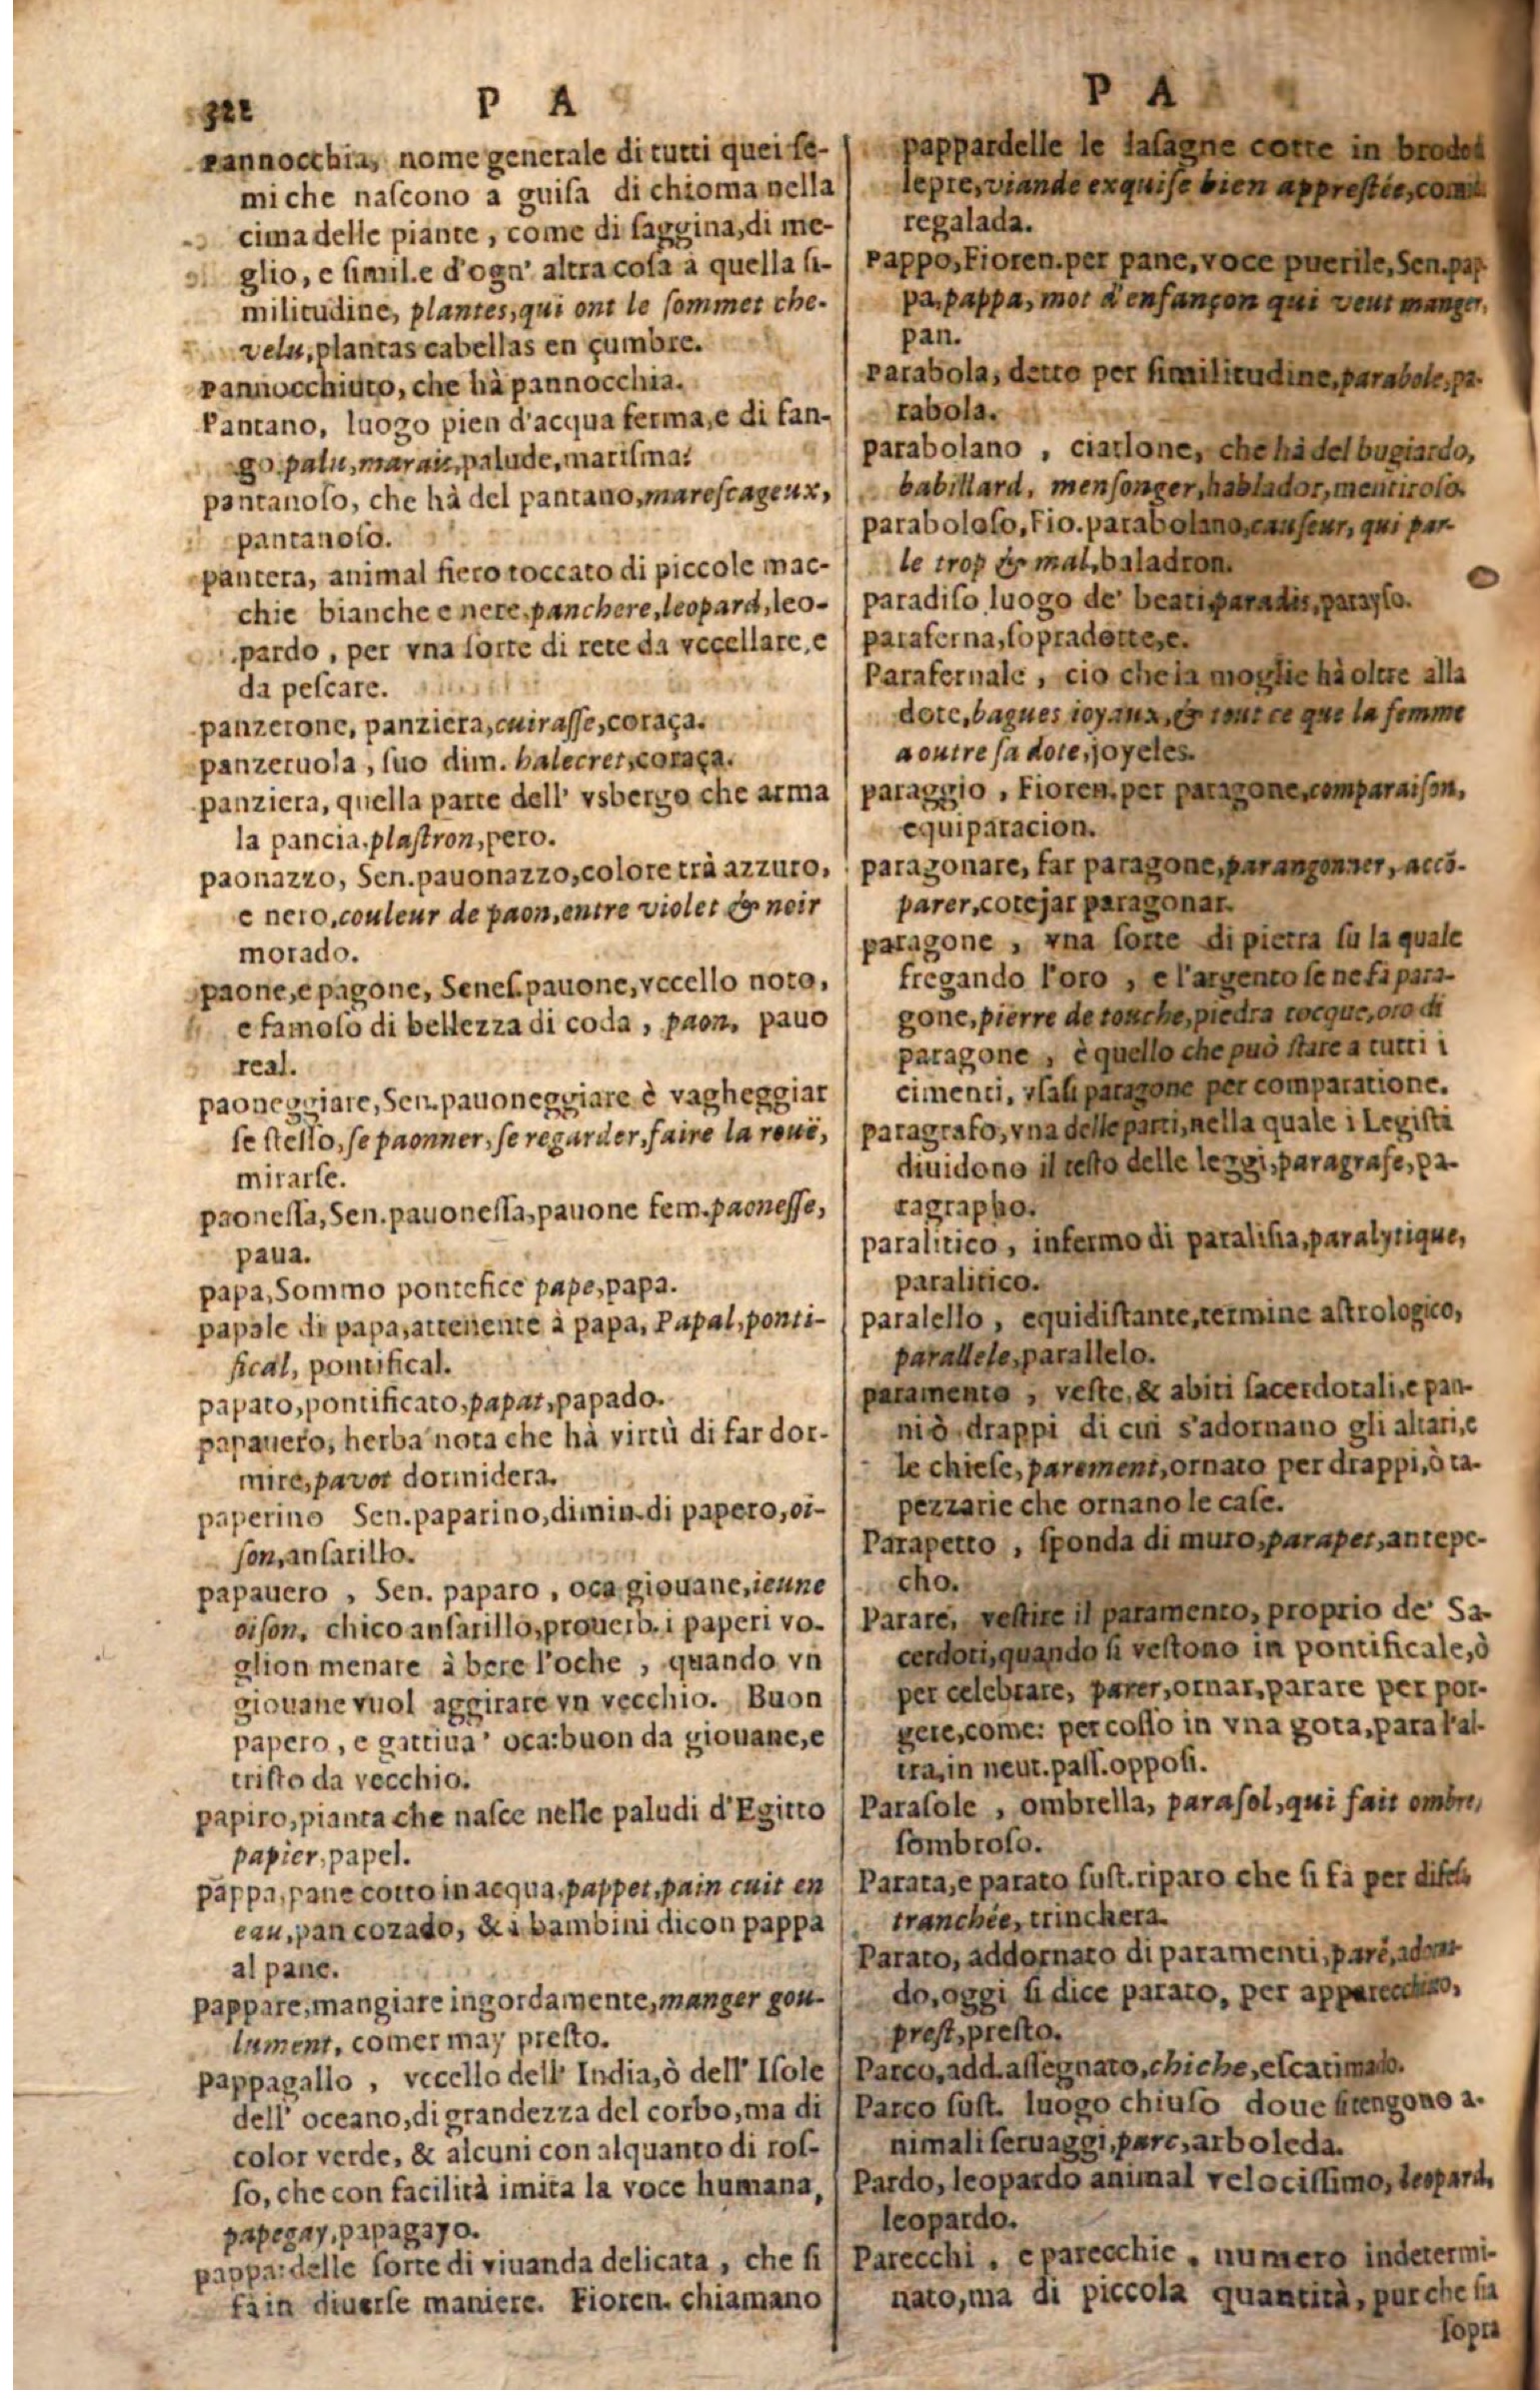 322 P A
pannocchia, nome generale di tutti quei ſe-
mi che naſcono a guiſa di chioma nella
cima delle piante, come di ſaggina, di me-
glio, e ſimil. e d'ogn' altra coſa à quella ſi-
militudine, plantes, qui ont le ſommet che-
velu, plantas cabellas en çumbre.
Pannocchiuto, che hà pannocchia.
Pantano, luogo pien d'acqua ferma, e di fan-
go palu, marais, palude, mariſma.
pantanoſo, che hà del pantano, mareſcageux,
pantanoſo.
pantera, animal fiero toccato di piccole mac-
chie bianche e nere, panchere, leopard, leo-
pardo, per vna ſorte di rete da vccellare, e
da peſcare.
panzerone, panziera, cuiraſſe, coraça.
panzeruola, ſuo dim. halecret, coraça.
panziera, quella parte dell' vsbergo che arma
la pancia, plaſtron, pero.
paonazzo, Sen. pauonazzo, colore trà azzuro,
e nero, couleur de paon, entre violet & noir
morado.
paone, e pagone, Seneſ. pauone, vccello noto,
e famoſo di bellezza di coda, paon, pauo
real.
paoneggiare, Sen. pauoneggiare è vagheggiar
ſe ſteſſo, ſe paonner, ſe regarder, faire la rouë,
mirarſe.
paoneſſa, Sen. pauoneſſa, pauone fem. paoneſſe,
paua.
papa, Sommo pontefice pape, papa.
papale di papa, attenente à papa, Papal, ponti-
fical, pontifical.
papato, pontificato, papat, papado.
papauero, herba nota che hà virtù di far dor-
mire, pavot dormidera.
paperino Sen. paparino, dimin. di papero, oi-
ſon, anſarillo.
papauero, Sen. paparo, oca giouane, ieune
oiſon, chico anſarillo, prouerb. i paperi vo-
glion menare à bere l'oche, quando vn
giouane vuol aggirare vn vecchio. Buon
papero, e gattiua' oca: buon da giouane, e
triſto da vecchio.
papiro, pianta che naſce nelle paludi d'Egitto
papier, papel.
pappa, pane cotto in acqua, pappet, pain cuit en
eau, pan cozado, & i bambini dicon pappa
al pane.
pappare, mangiare ingordamente, manger gou-
lument, comer may preſto.
pappagallo, vccello dell' India, ò dell' Iſole
dell' oceano, di grandezza del corbo, ma di
color verde, & alcuni con alquanto di roſ-
ſo, che con facilità imita la voce humana,
papegay, papagayo.
pappardelle ſorte di viuanda delicata, che ſi
fà in diuerſe maniere. Fioren. chiamano
P A
pappardelle le laſagne cotte in brodo
lepre, viande exquiſe bien appreſtée,
regalada.
Pappo, Fioren. per pane, voce puerile, Sen. pap-
pa, pappa, mot d'enfançon qui veut manger,
pan.
Parabola, detto per ſimilitudine, parabole, pa-
rabola.
parabolano, ciarlone, che hà del bugiardo,
babillard, menſonger, hablador, mentiroſo.
paraboloſo, Fio. parabolano, cauſeur, qui par-
le trop & mal, baladron.
paradiſo luogo de' beati, paradis, parayſo.
paraferna, ſopradotte, e.
Parafernale, cio che la moglie hà oltre alla
dote, bagues ioyaux, & tout ce que la femme
a outre ſa dote, joyeles.
paraggio, Fioren. per paragone, comparaiſon,
equiparacion.
paragonare, far paragone, parangonner, accō-
parer, cotejar paragonar.
paragone, vna ſorte di pietra ſu la quale
fregando l'oro, e l'argento ſe ne fà para-
gone, pierre de touche, piedra tocque, oro di
paragone, è quello che può ſtare a tutti i
cimenti, vſaſi paragone per comparatione.
paragrafo, vna delle parti, nella quale i Legiſti
diuidono il teſto delle leggi, paragrafe, pa-
ragrapho.
paralitico, infermo di paraliſia, paralytique,
paralitico.
paralello, equidiſtante, termine aſtrologico,
parallele, parallelo.
paramento, veſte, & abiti ſacerdotali, e pan-
ni ò drappi di cui s'adornano gli altari, e
le chieſe, parement, ornato per drappi, ò ta-
pezzarie che ornano le caſe.
Parapetto, ſponda di muro, parapet, antepe-
cho.
Parare, veſtire il paramento, proprio de' Sa-
cerdoti, quando ſi veſtono in pontificale, ò
per celebrare, parer, ornar, parare per por-
gere, come: percoſſo in vna gota, para l'al-
tra, in neut. paſſ. oppoſi.
Paraſole, ombrella, paraſol, qui fait ombre,
ſombroſo.
Parata, e parato ſuſt. riparo che ſi fà per difeſa
tranchée, trinchera.
Parato, addornato di paramenti, paré, adorna-
do, oggi ſi dice parato, per apparecchiato,
preſt, preſto.
Parco, add. aſſegnato, chiche, eſcatimado.
Parco ſuſt. luogo chiuſo doue ſi tengono a-
nimali ſeruaggi, parc, arboleda.
Pardo, leopardo animal velociſſimo, leopard,
leopardo.
Parecchi, e parecchie, numero indetermi-
nato, ma di piccola quantità, pur che ſia
ſopra